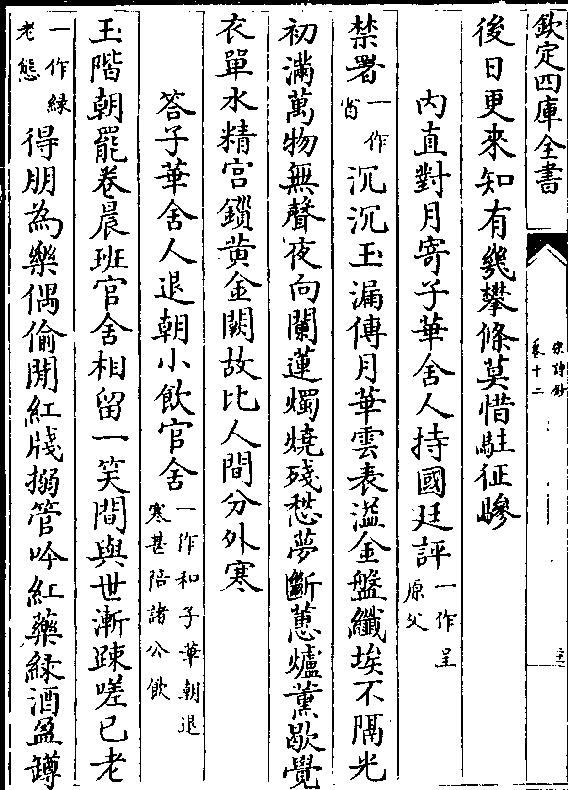 欽定四庫全書
宋詩鈔
卷十二
後日更來知有幾攀條莫惜駐征驂
内直對月寄子華舍人持國廷評一作呈原父
禁署一作省沉沉玉漏傳月華雲表溢金盤纖埃不隔光
初滿萬物無聲夜向闌蓮燭燒殘愁夢斷蕙爐薰歇覺
衣單水精宫鎖黄金闕故比人間分外寒
答子華舍人退朝小飲官舍一作和子華朝退寒甚陪諸公飲
玉階朝罷卷晨班官舍相留一笑間與世漸踈嗟已老
一作緑老態得朋為樂偶偷閒紅牋搦管吟紅藥緑酒盈罇